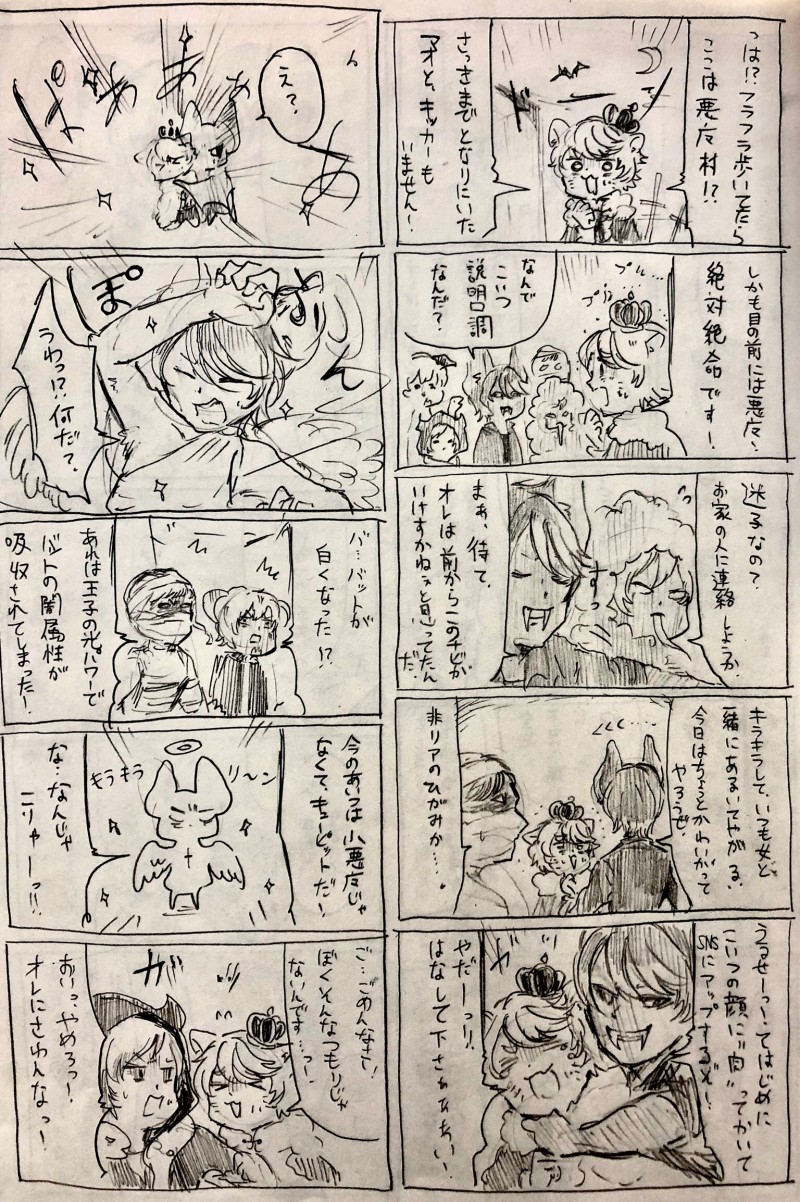 っは!?フラフラ歩いてたら
ここは悪庋村!?
さっきまでとなりにいた
アオと、キッカーも
いません!
しかも目の前には悪庋!
絶対絶命です!
ブル…
なんで
こいつ
説明口調
なんだ?
迷子なの?
お家の人に連絡しようか
まぁ、待て、
オレは前からこのチビが
いけすかねぇと思ってたん
だ
キラキラして、いつも女と
一緒にあるいてやがる、
今日はちょっとかわいがって
やろうぜ
くくく…
非リアのひがみか…。
うるせーっ!てはじめに
こいつの顔に"肉"ってかいて
SNSにアップするぞ!
やだーっ!!
はなして下さぁぁあい!
え?
ぱぁぁぁぁ
ぽ
ん
うわっ!?何だ?
バ…バットが
白くなった!?
あれは王子の光パワーで
バットの闇属性が
吸収されてしまった!
今のあいつは小悪庋じゃ
なくて、キューピットだ!
キラキラ
リ〜ン
な…なんじゃ
こりゃーっ!!
ご…ごめんなさい!
ぼくそんなつもりじゃ
ないんです…っ!
ガ
おいっ、やめろっ!
オレにさわんなっ!